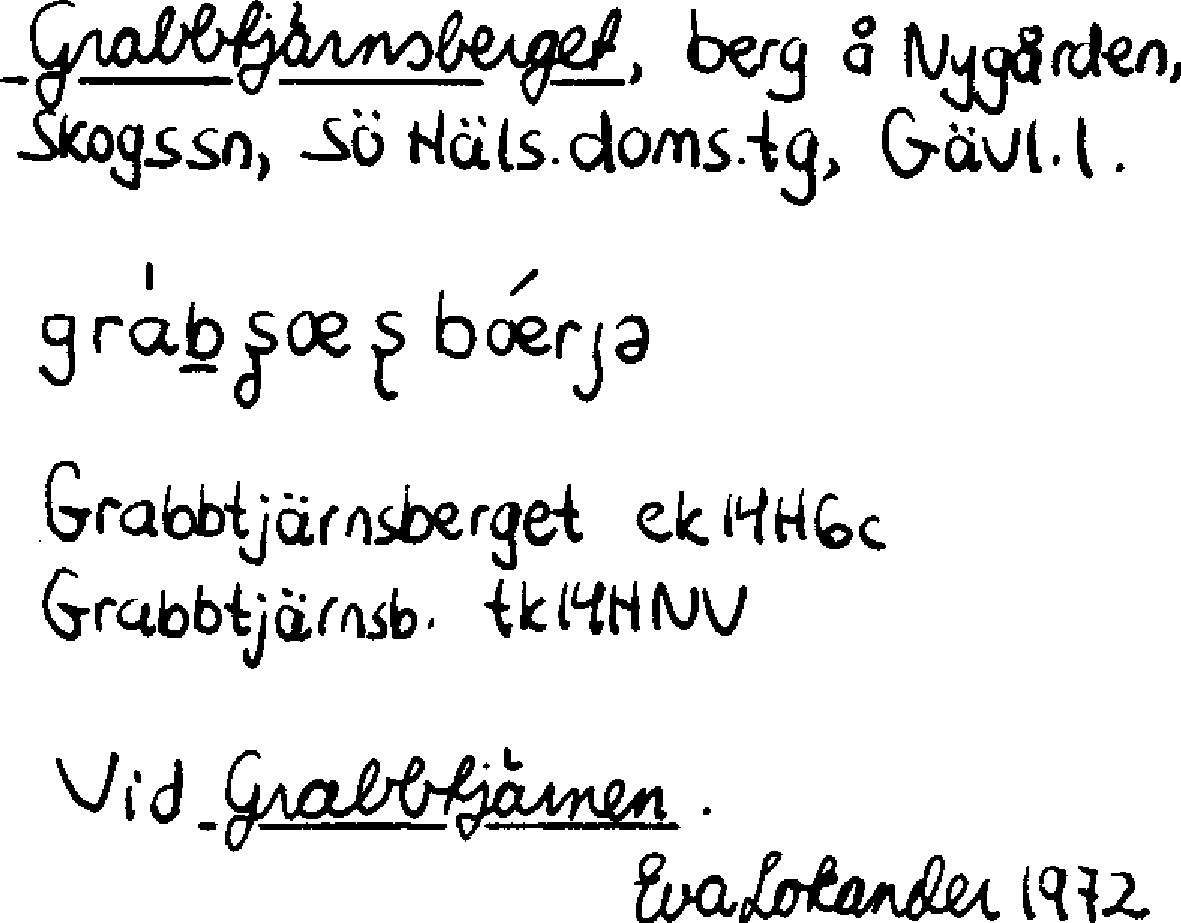 Grabbtjärnsberget, berg å Nygården,
Skogs sn, Sö Häls. doms. tg, Gävl. l.
Grabbtjärnsberget ek14H6c
Grabbtjärnsb. tk14HNV
Vid Grabbtjärnen.
Eva Lokander 1972